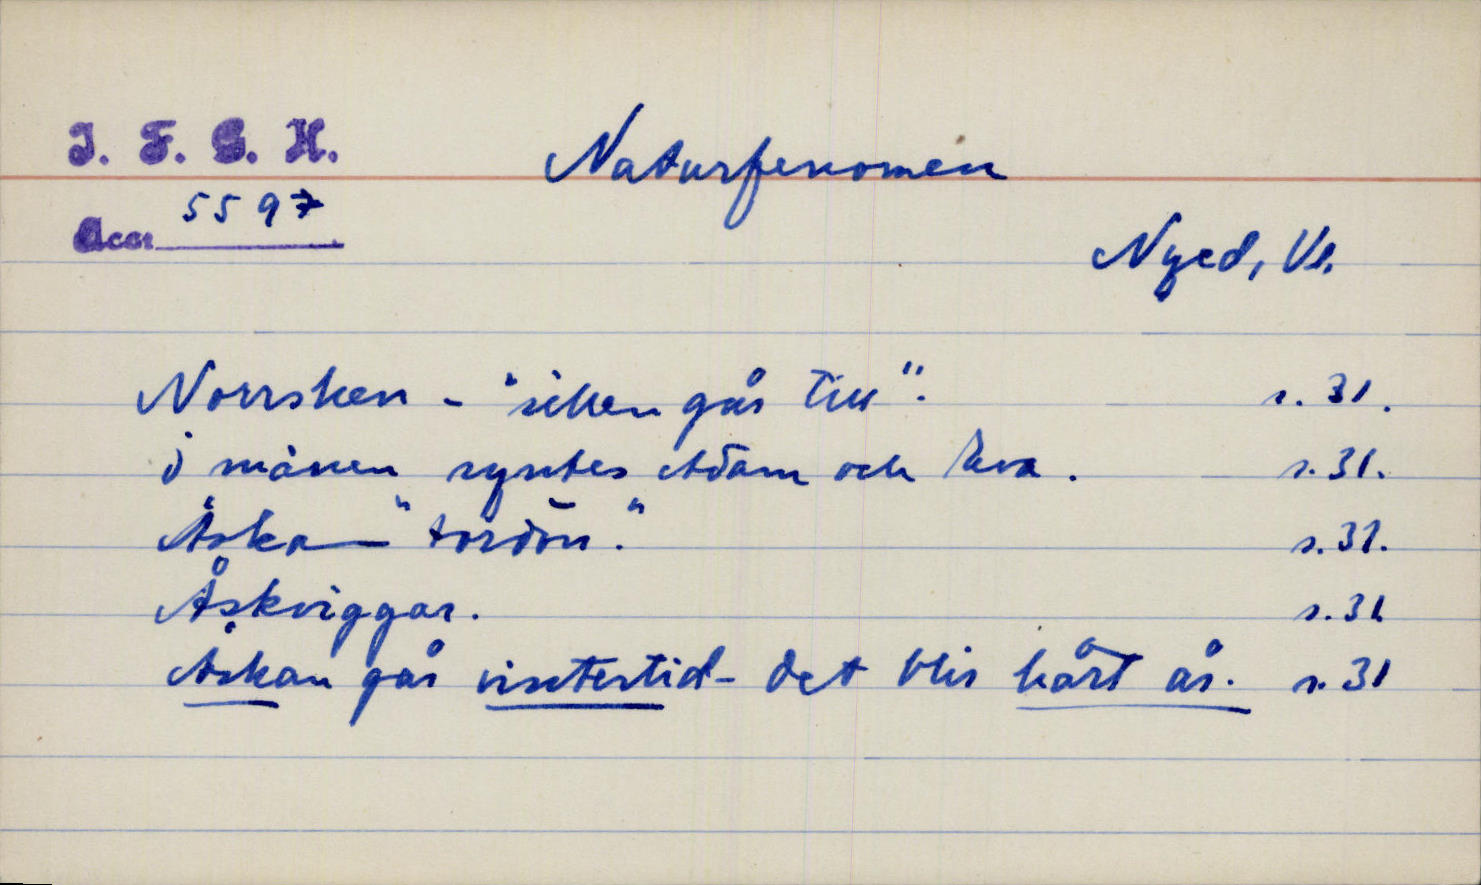 I. F. G. H.
Naturfenomen
Acc. 5597
Nyed, Vl.
Norrsken - "sillen går till". s. 31.
i månen syntes Adam och Eva. s. 31.
Åska - "tordön." s. 31.
Åskviggar. s. 31
Åskan går vintertid - det blir hårt år. s. 31